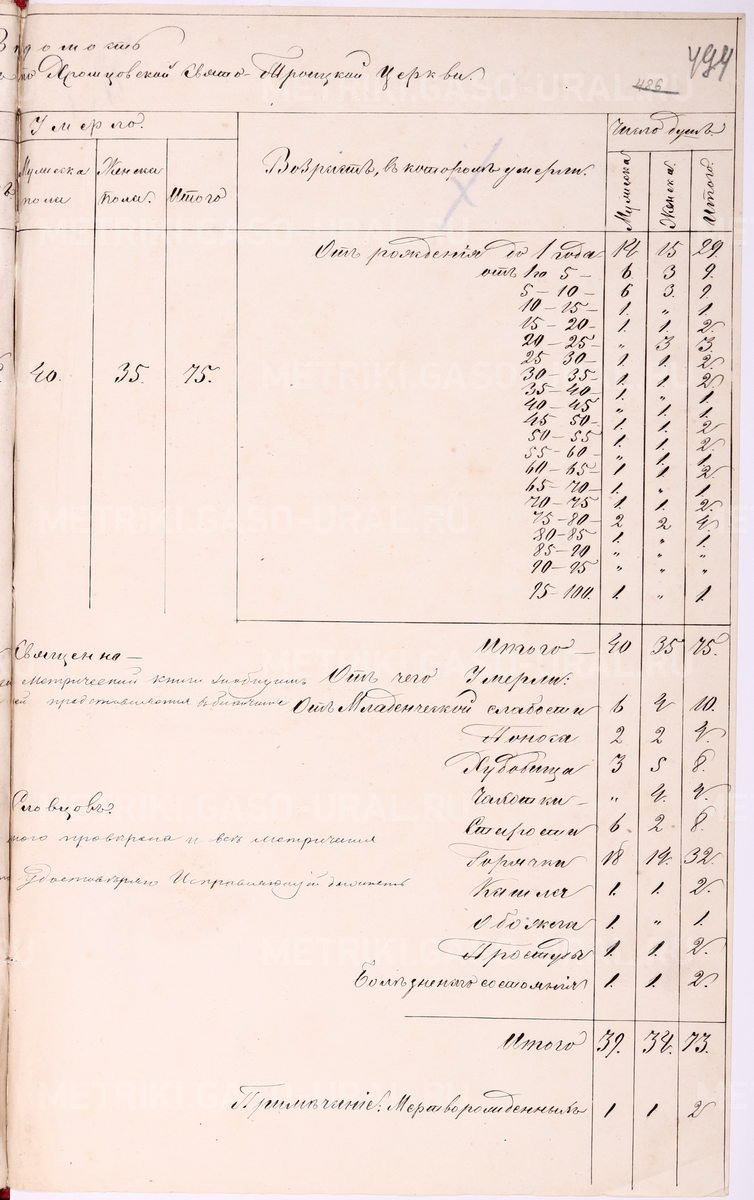 Вѣдомость
по Хромцовской Свято-Троицкой церкви.
494
486
Умерло.
Число душъ
Мужеска пола
Женска пола.
Итого
Возрастъ, въ которомъ умерли.
Мужеска
Женска
Итого.
Отъ рожденія до 1 года 14 15 29.
отъ 1 до 5 – 6. 3 9.
5 – 10 – 6 3. 9.
10 – 15 – 1. „ 1.
15 – 20 – 1. 1. 2.
20 – 25 – „ 3 3.
25 30 – 1. 1. 2.
30 – 35 – 1. 1. 2.
35 – 40 – 1. „ 1.
40 – 45 „ 1. 1.
45 50 – 1. 1. 2
50 – 55 1. 1. 2.
55 – 60 – „ 1. 1.
60 – 65 – 1 1 2.
65 – 70 – 1. „ 1.
70 – 75 1. 1. 2.
75 – 80 – 2 2 4.
80 – 85 1. „ 1.
85 – 90 „ „ „
90 – 95 „ „ „
95 – 100. 1. „ 1.
40. 35. 75.
Итого – 40 35 75.
Священна–
метрической книги
Отъ чего Умерли:
Отъ Младенческой слабости 6 4 10.
Поноса 2 2 4.
Худобища 3 5 8.
Чахотки – „ 4. 4.
Словцовъ.
Старости 6. 2 8.
провѣрена и всѣ метрическія
Горячки 18 14. 32
удостовѣряю Исправляющій должность
Кашля 1. 1. 2.
Обжога 1. „ 1.
Простуды 1. 1. 2.
Болѣзненнаго состоянія 1. 1. 2.
Итого 39. 34. 73.
Примѣчаніе: Мертворожденныхъ 1 1 2
METRIKI.GASO-URAL.RU